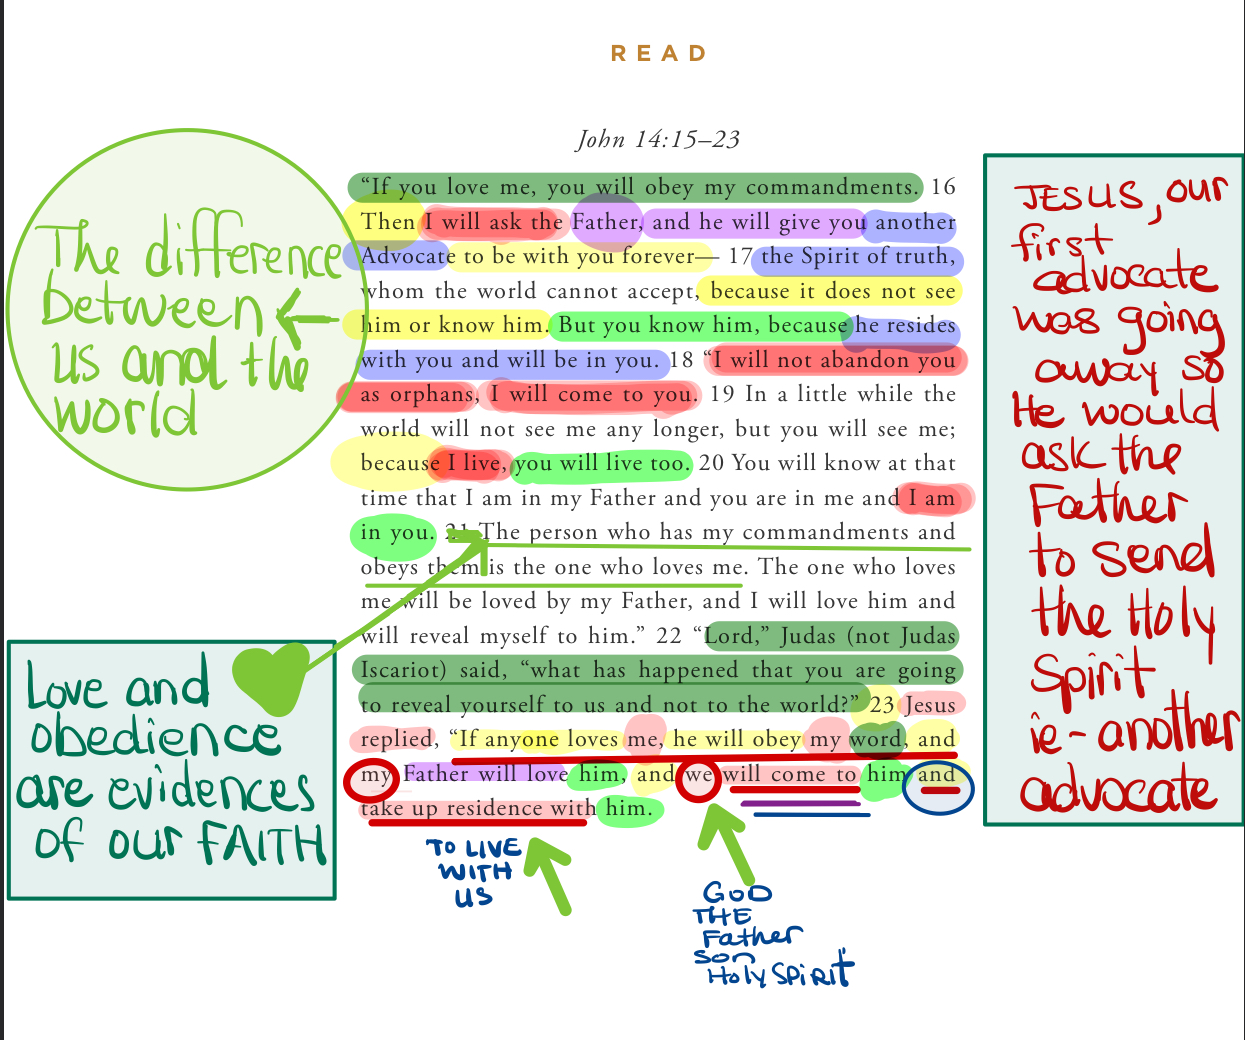 READ
John 14:15–23
“If you love me, you will obey my commandments. 16
Then I will ask the Father, and he will give you another
Advocate to be with you forever— 17 the Spirit of truth,
whom the world cannot accept, because it does not see
him or know him. But you know him, because he resides
with you and will be in you. 18 “I will not abandon you
as orphans, I will come to you. 19 In a little while the
world will not see me any longer, but you will see me;
because I live, you will live too. 20 You will know at that
time that I am in my Father and you are in me and I am
in you. 21 The person who has my commandments and
obeys them is the one who loves me. The one who loves
me will be loved by my Father, and I will love him and
will reveal myself to him.” 22 “Lord,” Judas (not Judas
Iscariot) said, “what has happened that you are going
to reveal yourself to us and not to the world?” 23 Jesus
replied, “If anyone loves me, he will obey my word, and
my Father will love him, and we will come to him and
take up residence with him.
The difference
between
us and the
world
Love and
obedience
are evidences
of our FAITH
JESUS, our
first
advocate
was going
away so
He would
ask the
Father
to send
the Holy
Spirit
ie - another
advocate
TO LIVE
WITH
US
GOD
THE
Father
Son
Holy SPIRIT